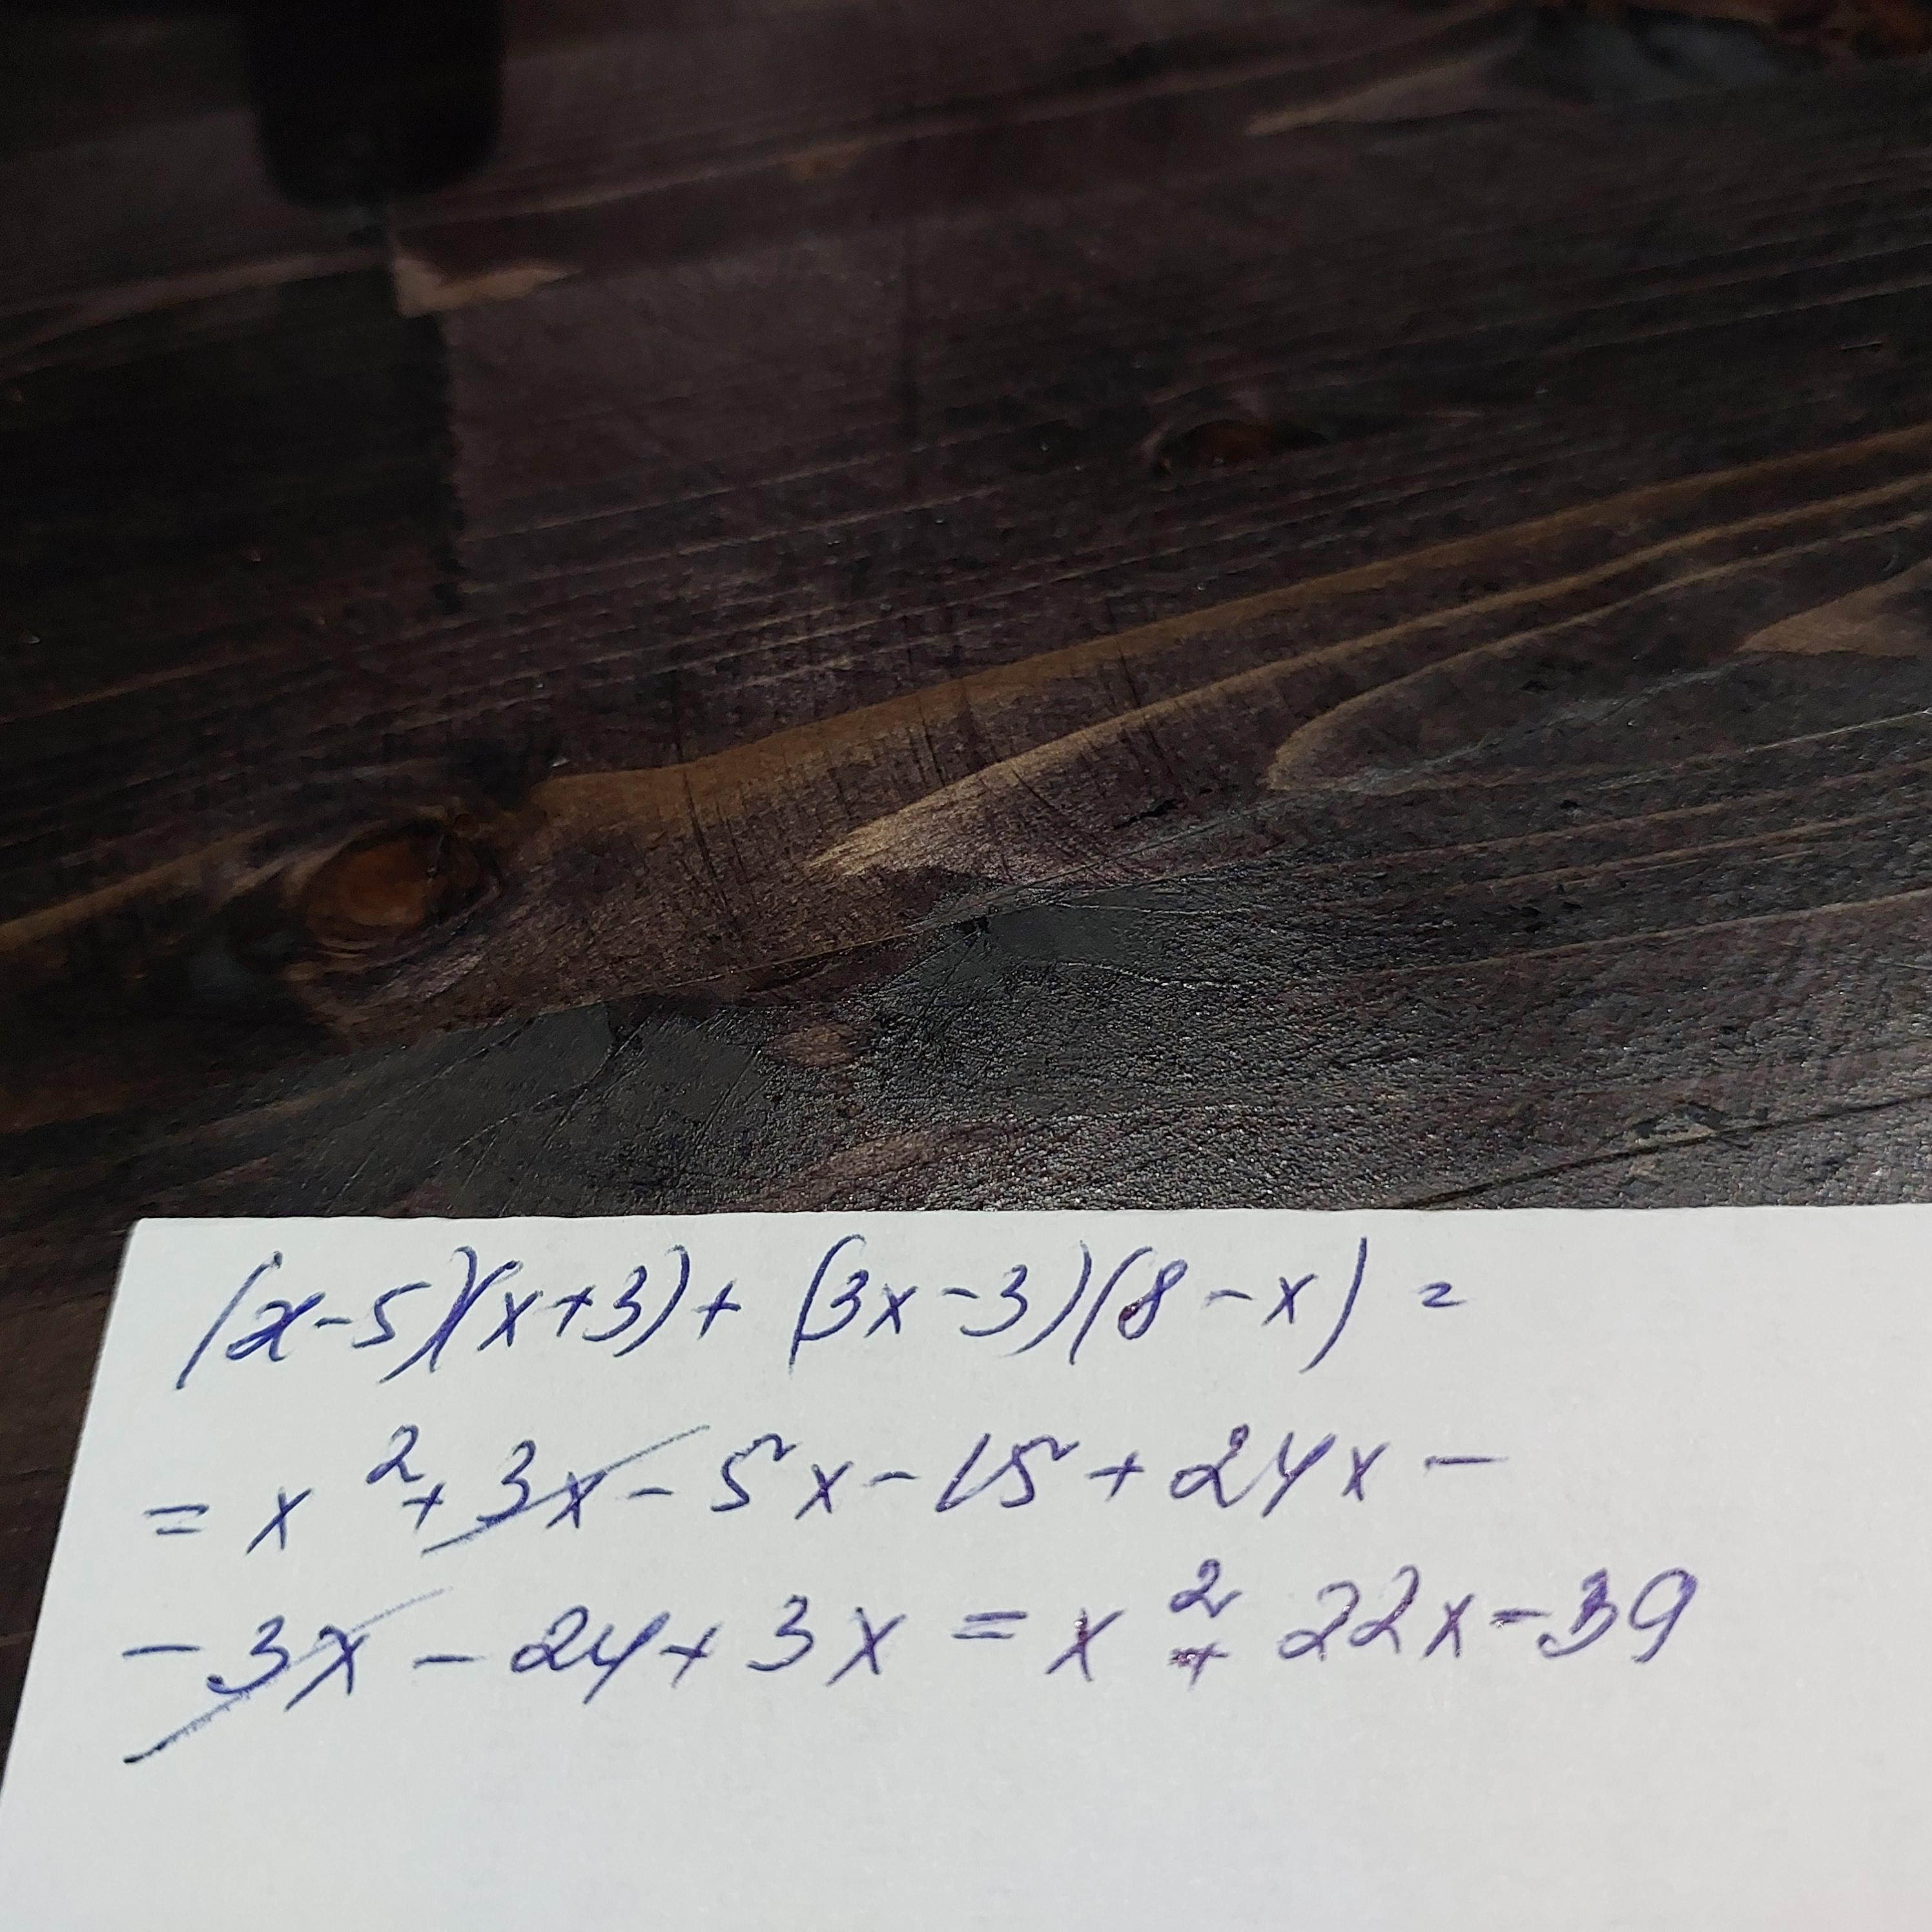 (x-5)(x+3)+ (3x-3)(8-x) =
= x²+3x-5x-15+24x-
-3x-24+3x = x²+22x-39